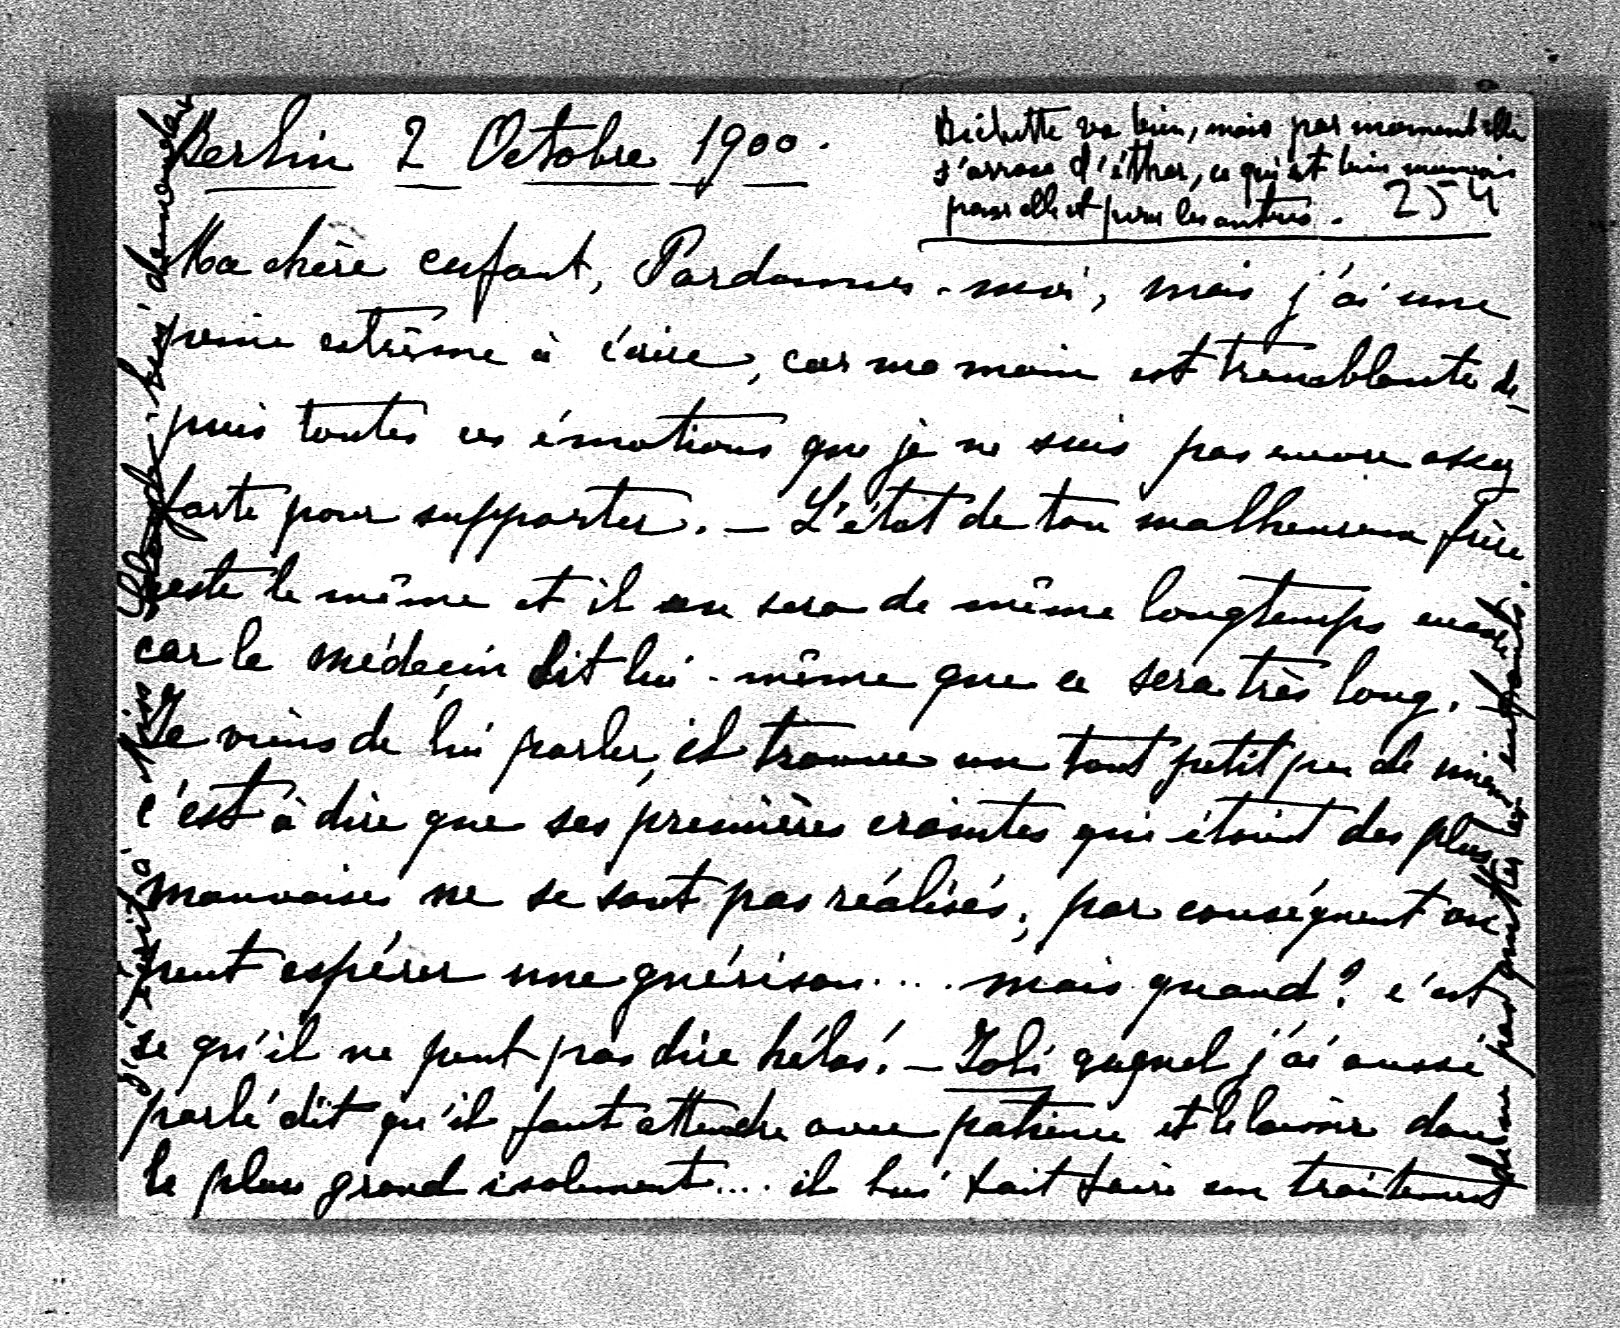 Berlin 2 Octobre 1900.
Bichette va bien, mais par moment elle
s'arrose d'éther, ce qui est bien mauvais
pour elle et pour les autres. 254
Ma chère enfant, Pardonnes-moi, mais j'ai une
peine extrême à écrire, car ma main est tremblante de-
puis toutes ces émotions que je ne suis pas encore assez
forte pour supporter. — L'état de ton malheureux frère
reste le même et il en sera de même longtemps encore
car le médecin dit lui-même que ce sera très long.
Je viens de lui parler, il trouve un tout petit peu de mieux
c'est à dire que ses premières craintes qui étaient des plus
mauvaises ne se sont pas réalisés, par conséquent on
peut espérer une guérison.... mais quand? c'est
se qu'il ne peut pas dire hélas! — Joli auquel j'ai aussi
parlé dit qu'il faut attendre avec patience et le laisser dans
le plus grand isolement.... il lui fait faire un traitement
j'écrirai à
demander
pas quitter les enfants.